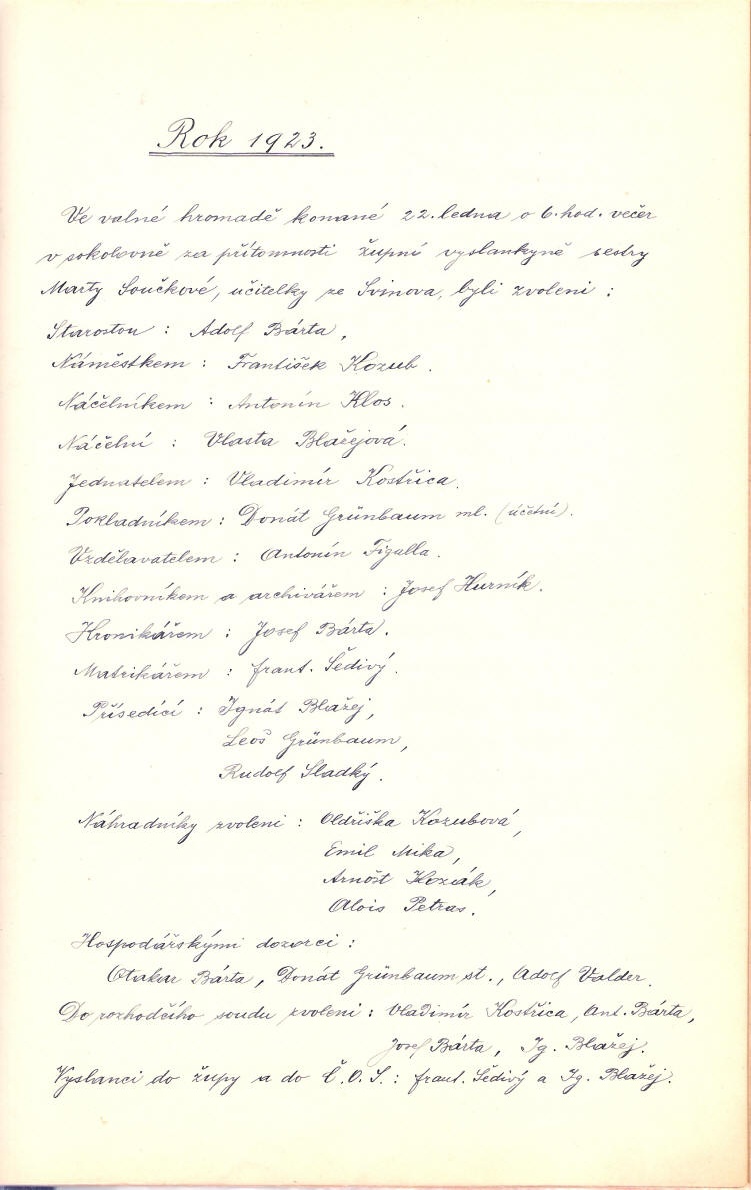 Rok 1923.
Ve valné hromadě konané 22. ledna o 6. hod. večer
v sokolovně za přítomnosti župní vyslankyně sestry
Marty Součkové, učitelky ze Svinova, byli zvoleni :
Starostou : Adolf Bárta,
Náměstkem : František Kozub.
Náčelníkem : Antonín Klos.
Náčelní : Vlasta Blažejová.
Jednatelem : Vladimír Kostřica.
Pokladníkem : Donát Grünbaum ml. (účetní).
Vzdělavatelem : Antonín Figalla.
Knihovníkem a archivářem : Josef Hurník.
Kronikářem : Josef Bárta.
Matrikářem : Frant. Šedivý.
Přísedící : Ignát Blažej,
Leoš Grünbaum,
Rudolf Sladký.
Náhradníky zvoleni : Oldřiška Kozubová,
Emil Mika,
Arnošt Koziák,
Alois Petras.
Hospodářskými dozorci :
Otakar Bárta, Donát Grünbaum st., Adolf Valder.
Do rozhodčího soudu zvoleni : Vladimír Kostřica, Ant. Bárta,
Josef Bárta, Ig. Blažej.
Vyslanci do župy a do Č.O.S. : Frant. Šedivý a Ig. Blažej.